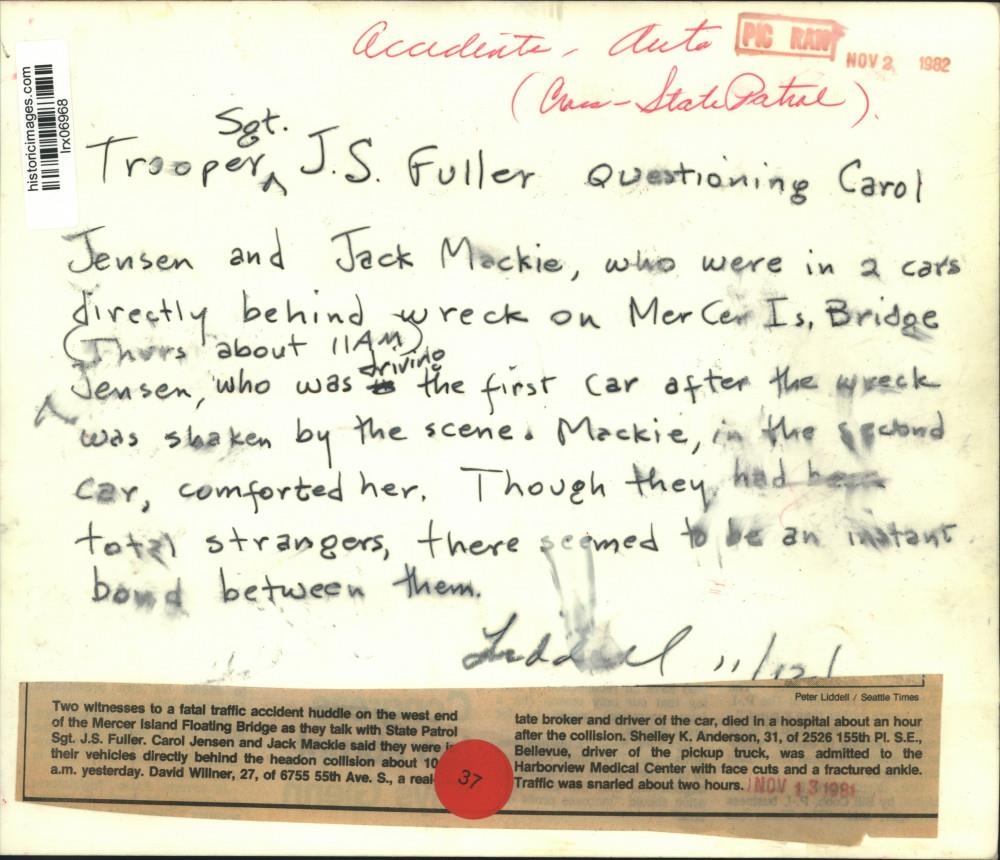 Accidents - Auto
PIC RAN
NOV 2 1982
(Cross - State Patrol).
historicimages.com
lrx06968
Sgt.
Trooper ^ J.S. Fuller questioning Carol
Jensen and Jack Mackie, who were in 2 cars
directly behind wreck on Mercer Is. Bridge
(Thurs about 11AM)
driving
Jensen, who was the first car after the wreck
was shaken by the scene. Mackie, in the second
car, comforted her. Though they had been
total strangers, there seemed to be an instant
bond between them.
Liddell 11/12/
Peter Liddell / Seattle Times
Two witnesses to a fatal traffic accident huddle on the west end
of the Mercer Island Floating Bridge as they talk with State Patrol
Sgt. J.S. Fuller. Carol Jensen and Jack Mackie said they were in
their vehicles directly behind the headon collision about 10
a.m. yesterday. David Willner, 27, of 6755 55th Ave. S., a real
tate broker and driver of the car, died in a hospital about an hour
after the collision. Shelley K. Anderson, 31, of 2526 155th Pl. S.E.,
Bellevue, driver of the pickup truck, was admitted to the
Harborview Medical Center with face cuts and a fractured ankle.
Traffic was snarled about two hours.
NOV 13 1981
37